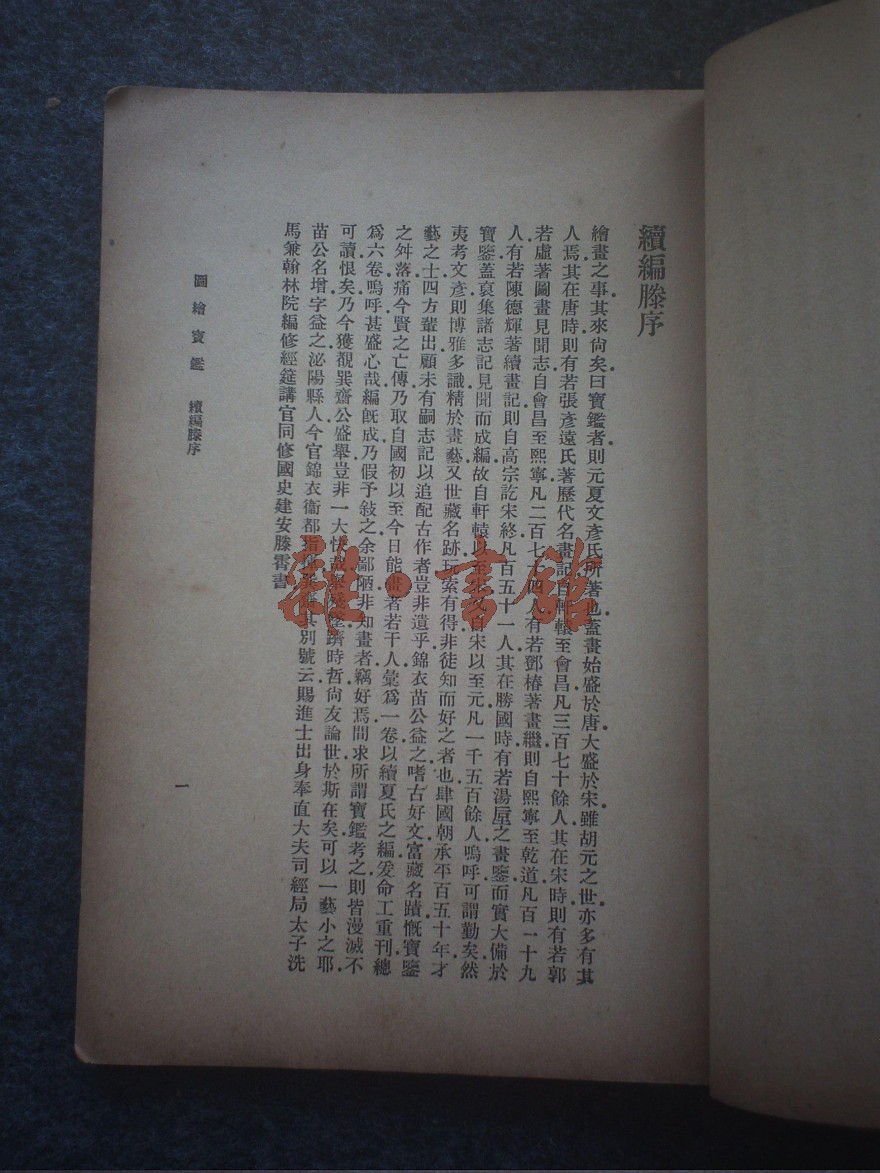 續編滕序
繪畫之事其來尙矣曰寶鑑者則元夏文彥氏所著也蓋畫始盛於唐大盛於宋雖胡元之世亦多有其
人焉其在唐時則有若張彥遠氏著歷代名畫記自軒轅至會昌凡三百七十餘人其在宋時則有若郭
若虛著圖畫見聞志自會昌至熙寧凡二百七十四人有若鄧椿著畫繼則自熙寧至乾道凡百一十九
人有若陳德輝著續畫記則自高宗訖宋終凡百五十一人其在勝國時有若湯垕之畫鑒而實大備於
寶鑒蓋裒集諸志記見聞而成編故自軒轅以至宋又自宋以至元凡一千五百餘人嗚呼可謂勤矣然
夷考文彥則博雅多識精於畫藝又世藏名跡玩索有得非徒知而好之者也肆國朝承平百五十年才
藝之士四方輩出顧未有嗣志記以追配古作者豈非遺乎錦衣苗公益之嗜古好文富藏名蹟慨寶鑒
之舛落痛今賢之亡傳乃取自國初以至今日能畫者若干人彙爲一卷以續夏氏之編爰命工重刊總
爲六卷嗚呼甚盛心哉編旣成乃假予敍之余鄙陋非知畫者竊好焉間求所謂寶鑑考之則皆漫滅不
可讀恨矣乃今獲覩巽齋公盛舉豈非一大快哉舉墜躋時哲尙友論世於斯在矣可以一藝小之耶
苗公名增字益之泌陽縣人今官錦衣衞都指揮其別號云賜進士出身奉直大夫司經局太子洗
馬兼翰林院編修經筵講官同修國史建安滕霄書
圖繪寶鑑 續編滕序
一
雜·書館